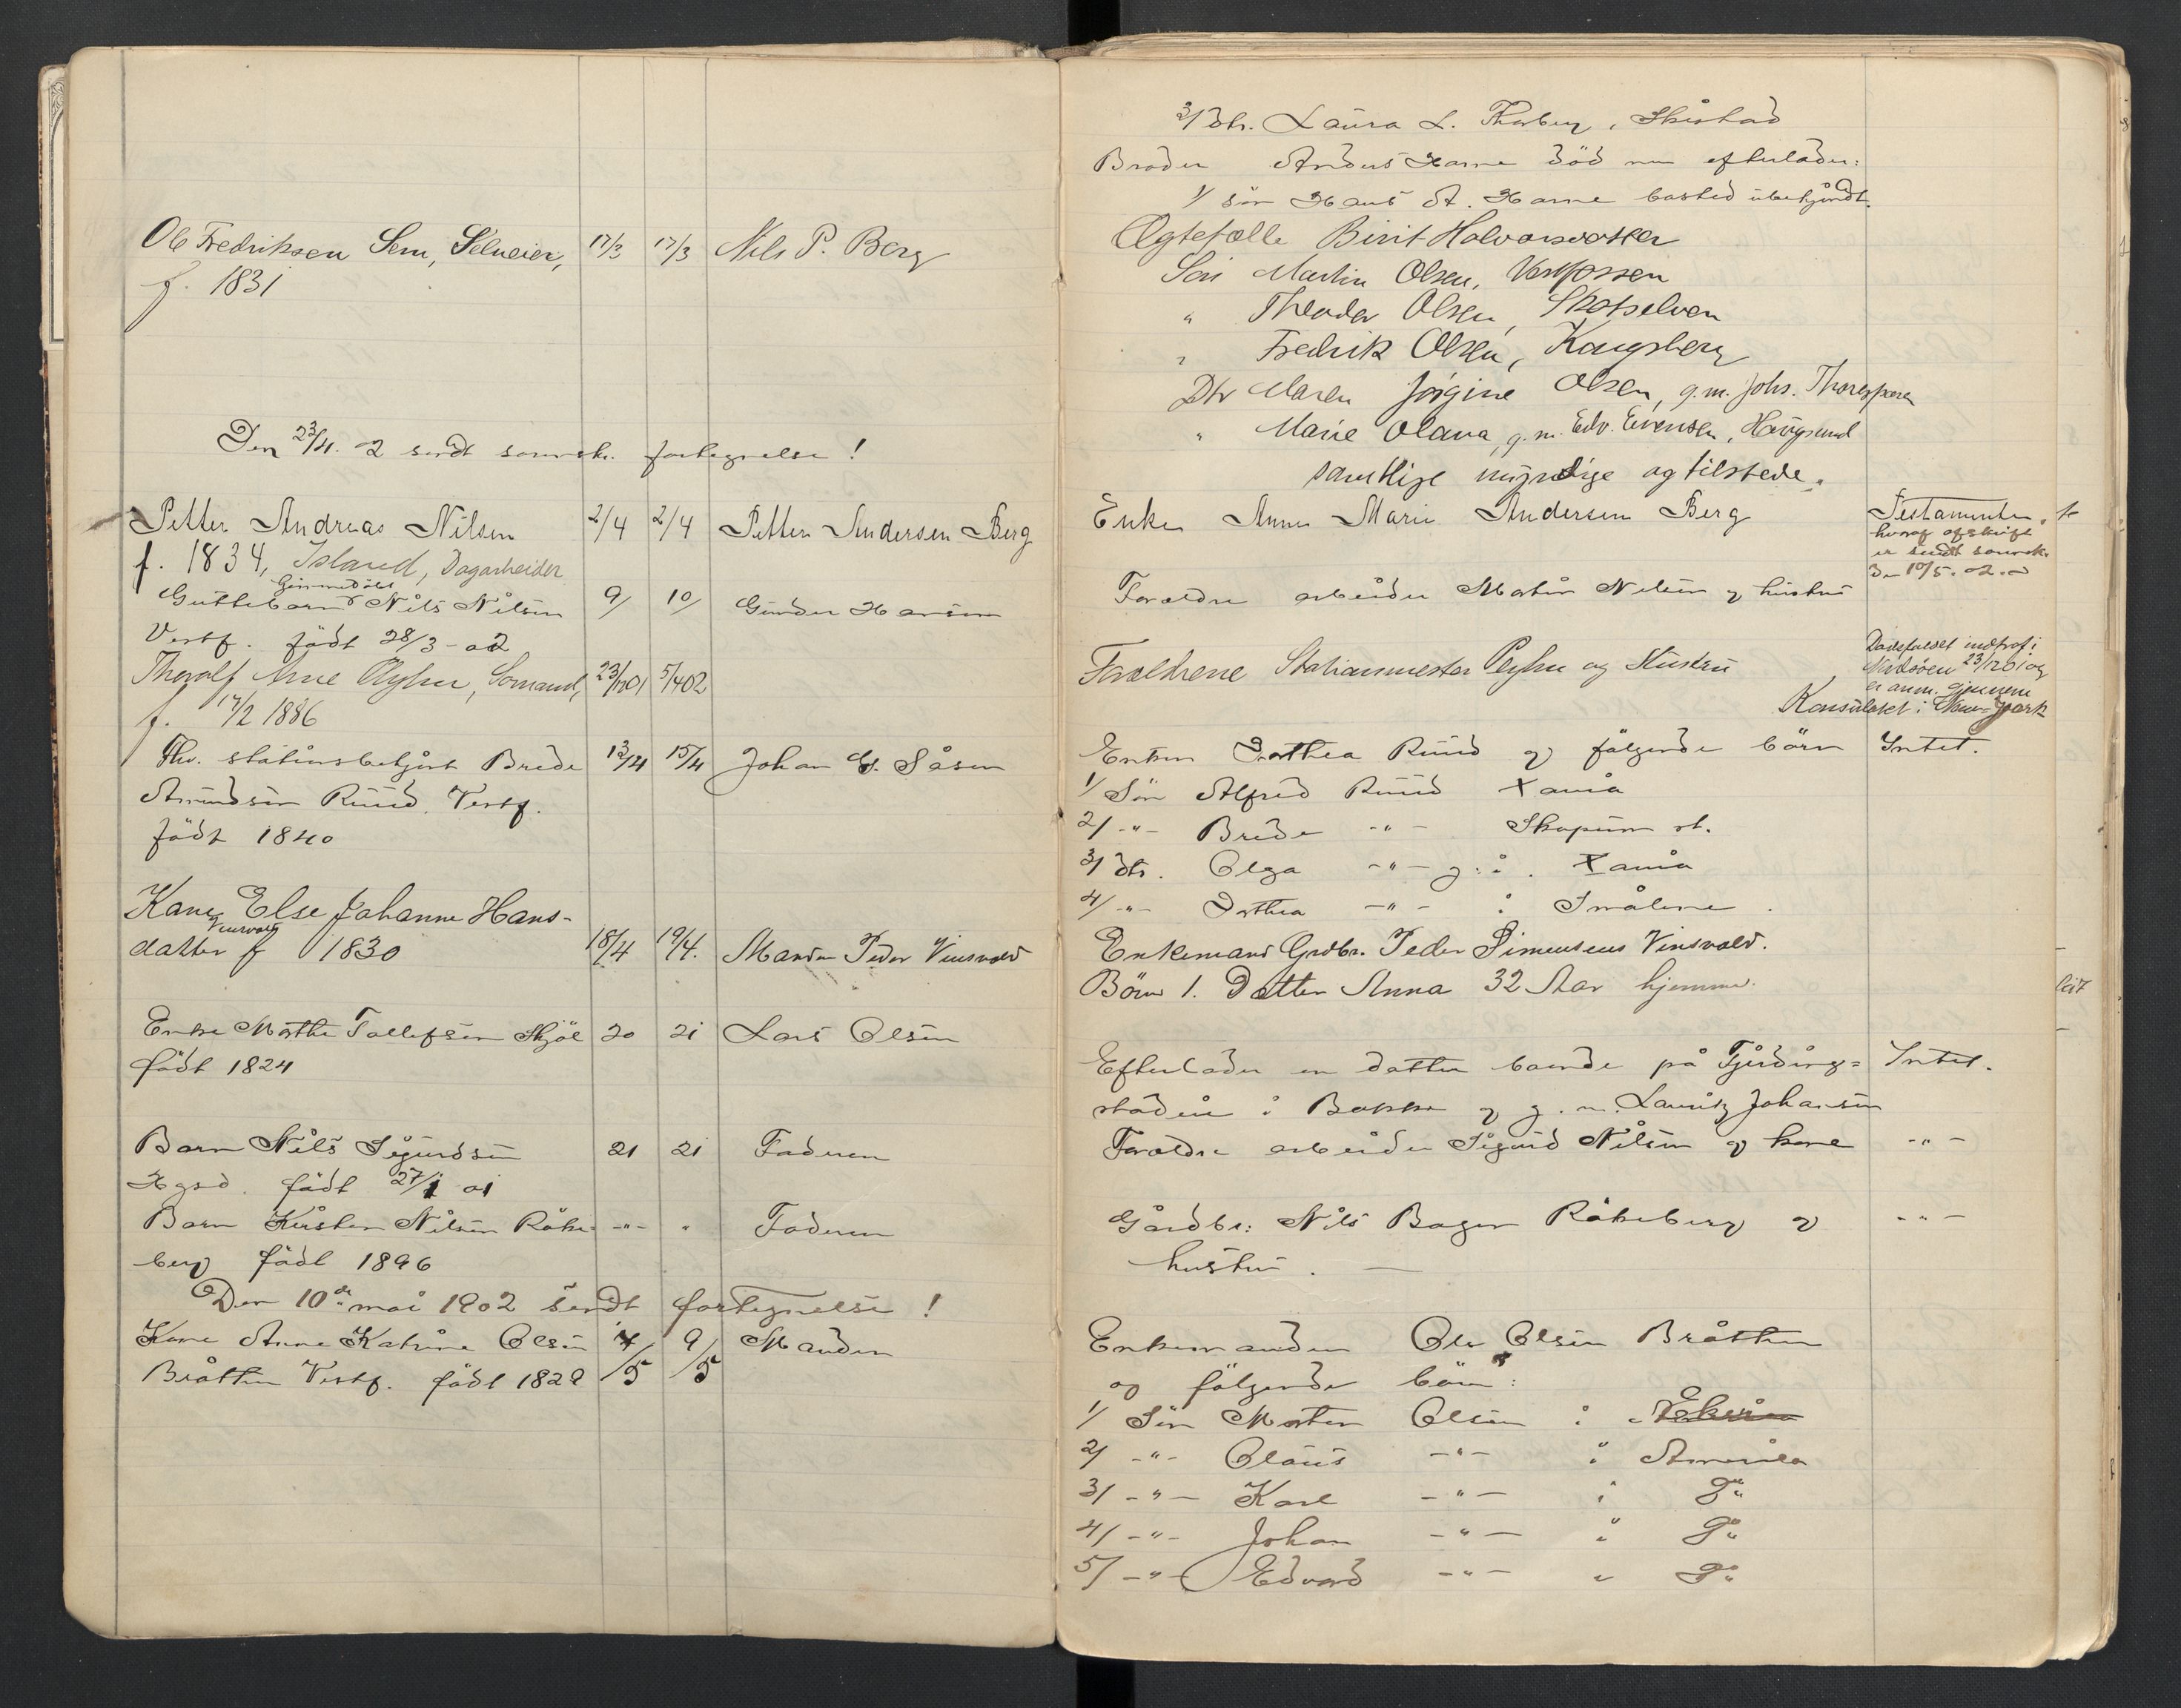 Ole Fredriksen Sem, Selveier, 17/3 17/3 Nils P. Berg
f. 1831
Den 23/4. 02 sendt sorensk. fortegnelse!
Petter Andreas Nilsen 2/4 2/4 Petter Andersen Berg
f. 1834, Island, Dagarbeider
Guttebarn Nils Nilsen 9/ 10/ Gunder Hansen
Vestf. født 28/3-02
Thoralf Arne Flyhn, Sømand, 23/1201 5/402
f. 17/2 1886
Fhv. stationsbetjent Brede 13/4 15/4 Johan E. Såsen
Amundsen Ruud. Vestf.
født 1840
Kane Else Johanne Hans-
Vinsvold
datter f 1830 18/4 19/4. Manden Peder Vinsvold
Enke Marthe Tollefsen Skjøl 20 21 Lars Olsen
født 1824
Barn Nils Sigurdsen 21 21 Faderen
Hgsd. født 27/1 01
Barn Kirsten Nilsen Råke- -"- " Faderen
berg født 1896
Den 10de mai 1902 sendt fortegnelse!
Kone Anne Katrine Olsen 7/5 9/5 Manden
Bråtten Vestf. født 1829
3/ dtr. Laura L. Thorberg, Skistad
Broder Anders Harne død men efterlader:
1/ søn Hans A. Harne bosted ubekjendt.
Ægtefælle Birit Halvorsdatter
Søn Martin Olsen, Vestfossen
" Theodor Olsen, Skotselven
" Fredrik Olsen, Kongsberg
Dtr Maren Jørgine Olsen, g.m. Johs. Thoresen
" Marie Olava, g.m. Edv. Evensen, Haugsund
samtlige myndige og tilstede.
Enken Anne Marie Andersen Berg Testamente,
hvoraf afskrift
er sendt sorensk.
den 10/5. 02.
Forældre arbeider Martin Nilsen og hustru
Forældrene Stationsmester Flyhn og Hustru Dødsfaldet indtraf i
Nordsøen 23/1201 og
er anm. gjennem
Konsulatet i New-York
Enken Dorthea Ruud og følgende børn Intet.
1/ Søn Alfred Ruud Xania
2/ -"- Brede -"- Skopum st.
3/ dtr. Olga -"- g. i. Xania
4/ -"- Dorthea -"- i Smålene.
Enkemand Grdbr. Peder Simensens Vinsvold.
Børn 1. Datter Anna 32 Aar hjemme.
Efterlader en datter boende på Fjerding- Intet.
stadeie i Bakke og g. m. Lauritz Johansen
Forældre arbeider Sigurd Nilsen og kone -"-
Gårdbr: Nils Bager Råkeberg og -"-
hustru. —
Enkemanden Ole Olsen Bråtten
og følgende børn:
1/ Søn Morten Olsen i
2/ -"- Olaus -"- i Amerika
3/ -"- Karl -"- i Do
4/ -"- Johan -"- i Do
5/ -"- Edvard -"- " Do